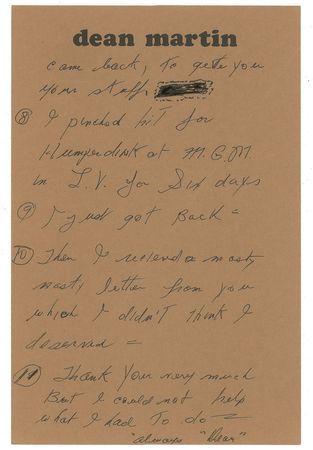 dean martin
come back, to get you
your stuff,
⑧ I pinched hit for
Humperdink at M.G.M.
in L.V. for Six days
⑨ I just got Back =
⑩ Then I recieved a nasty
nasty letter from you
which I didn't think I
deserved =
⑪ Thank you very much
But I could not help
what I had To do =
"always "Dean"